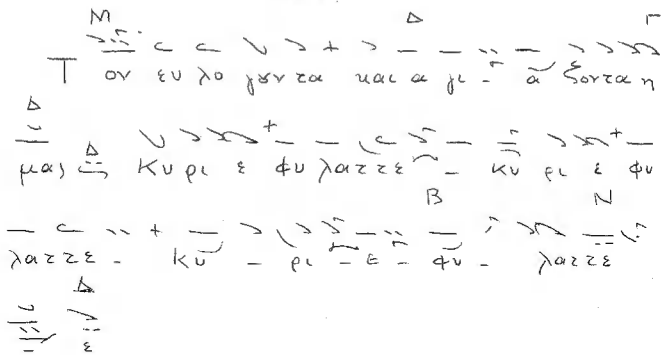 Μ Δ Γ
Τ ον ευ λο γȣν τα και α γι - α ζοντα η
Δ Δ
μας Κυ ρι ε φυ λαττε - κυ ρι ε φυ
Β Ν
λαττε - κυ - ρι - ε - φυ - λαττε
Δ
- ε